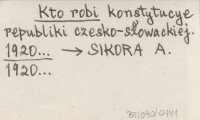 Kto robi konstytucye
republiki czesko-słowackiej.
1920... → SIKORA A.
1920...